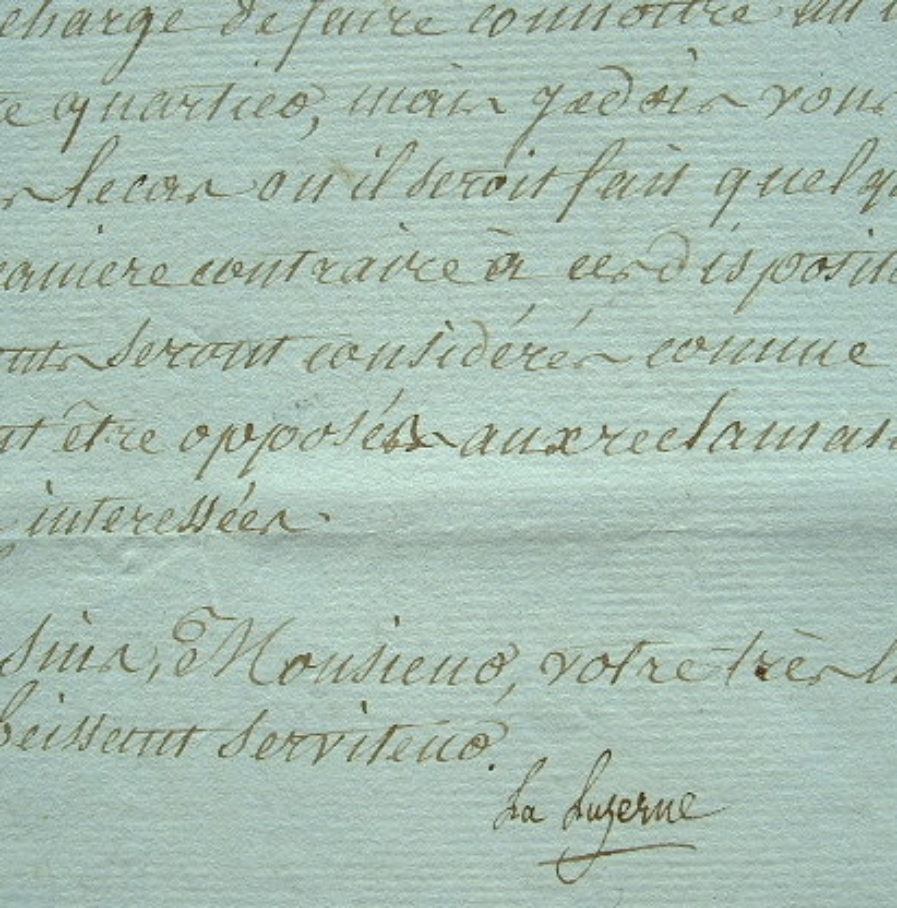 charge de faire connoitre au
quartier, mais je dois vous
le cas ou il seroit fait quelq
aniere contraire à ces disposit
seront considérés comme
nt être opposés aux reclamat
interessées.
suis, Monsieur, votre très h
beissant serviteur.
La Luzerne